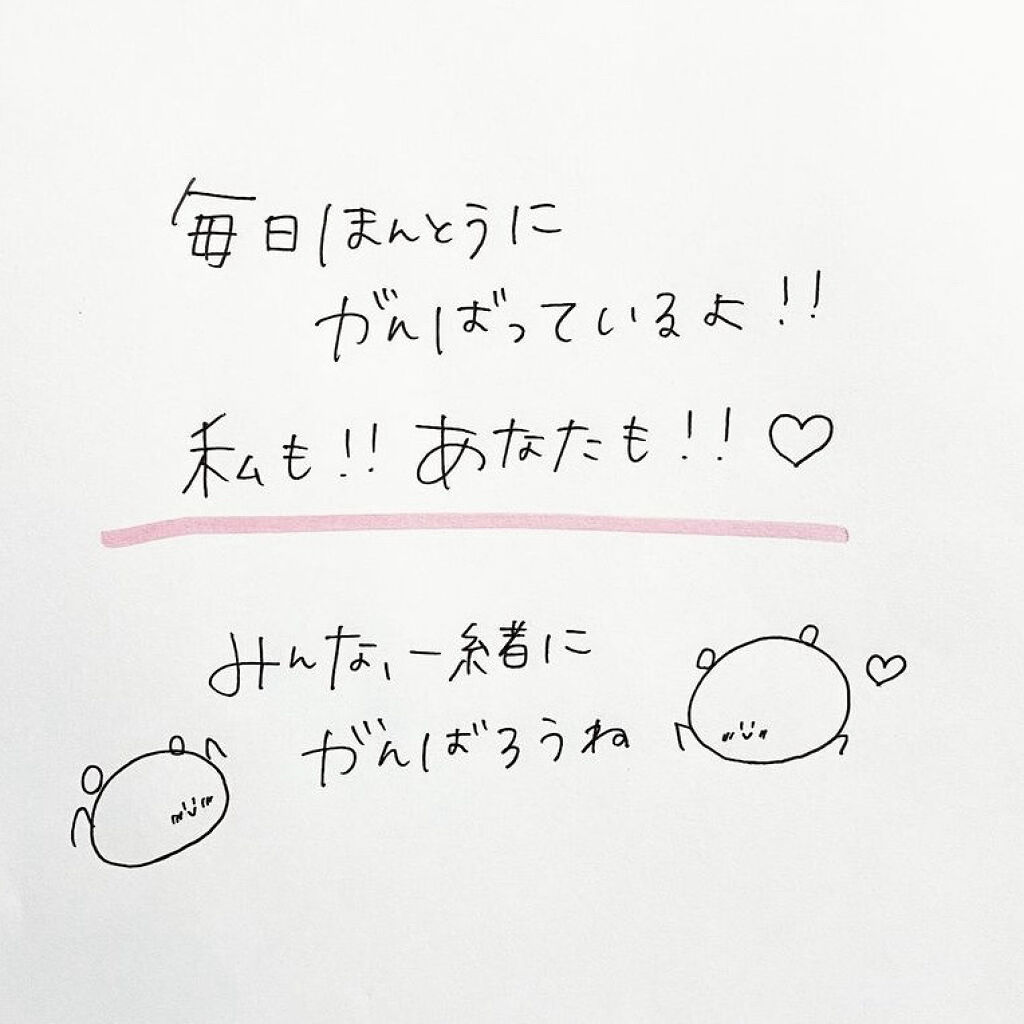 毎日ほんとうに
がんばっているよ!!
私も!! あなたも!! ♡
みんな、一緒に
がんばろうね